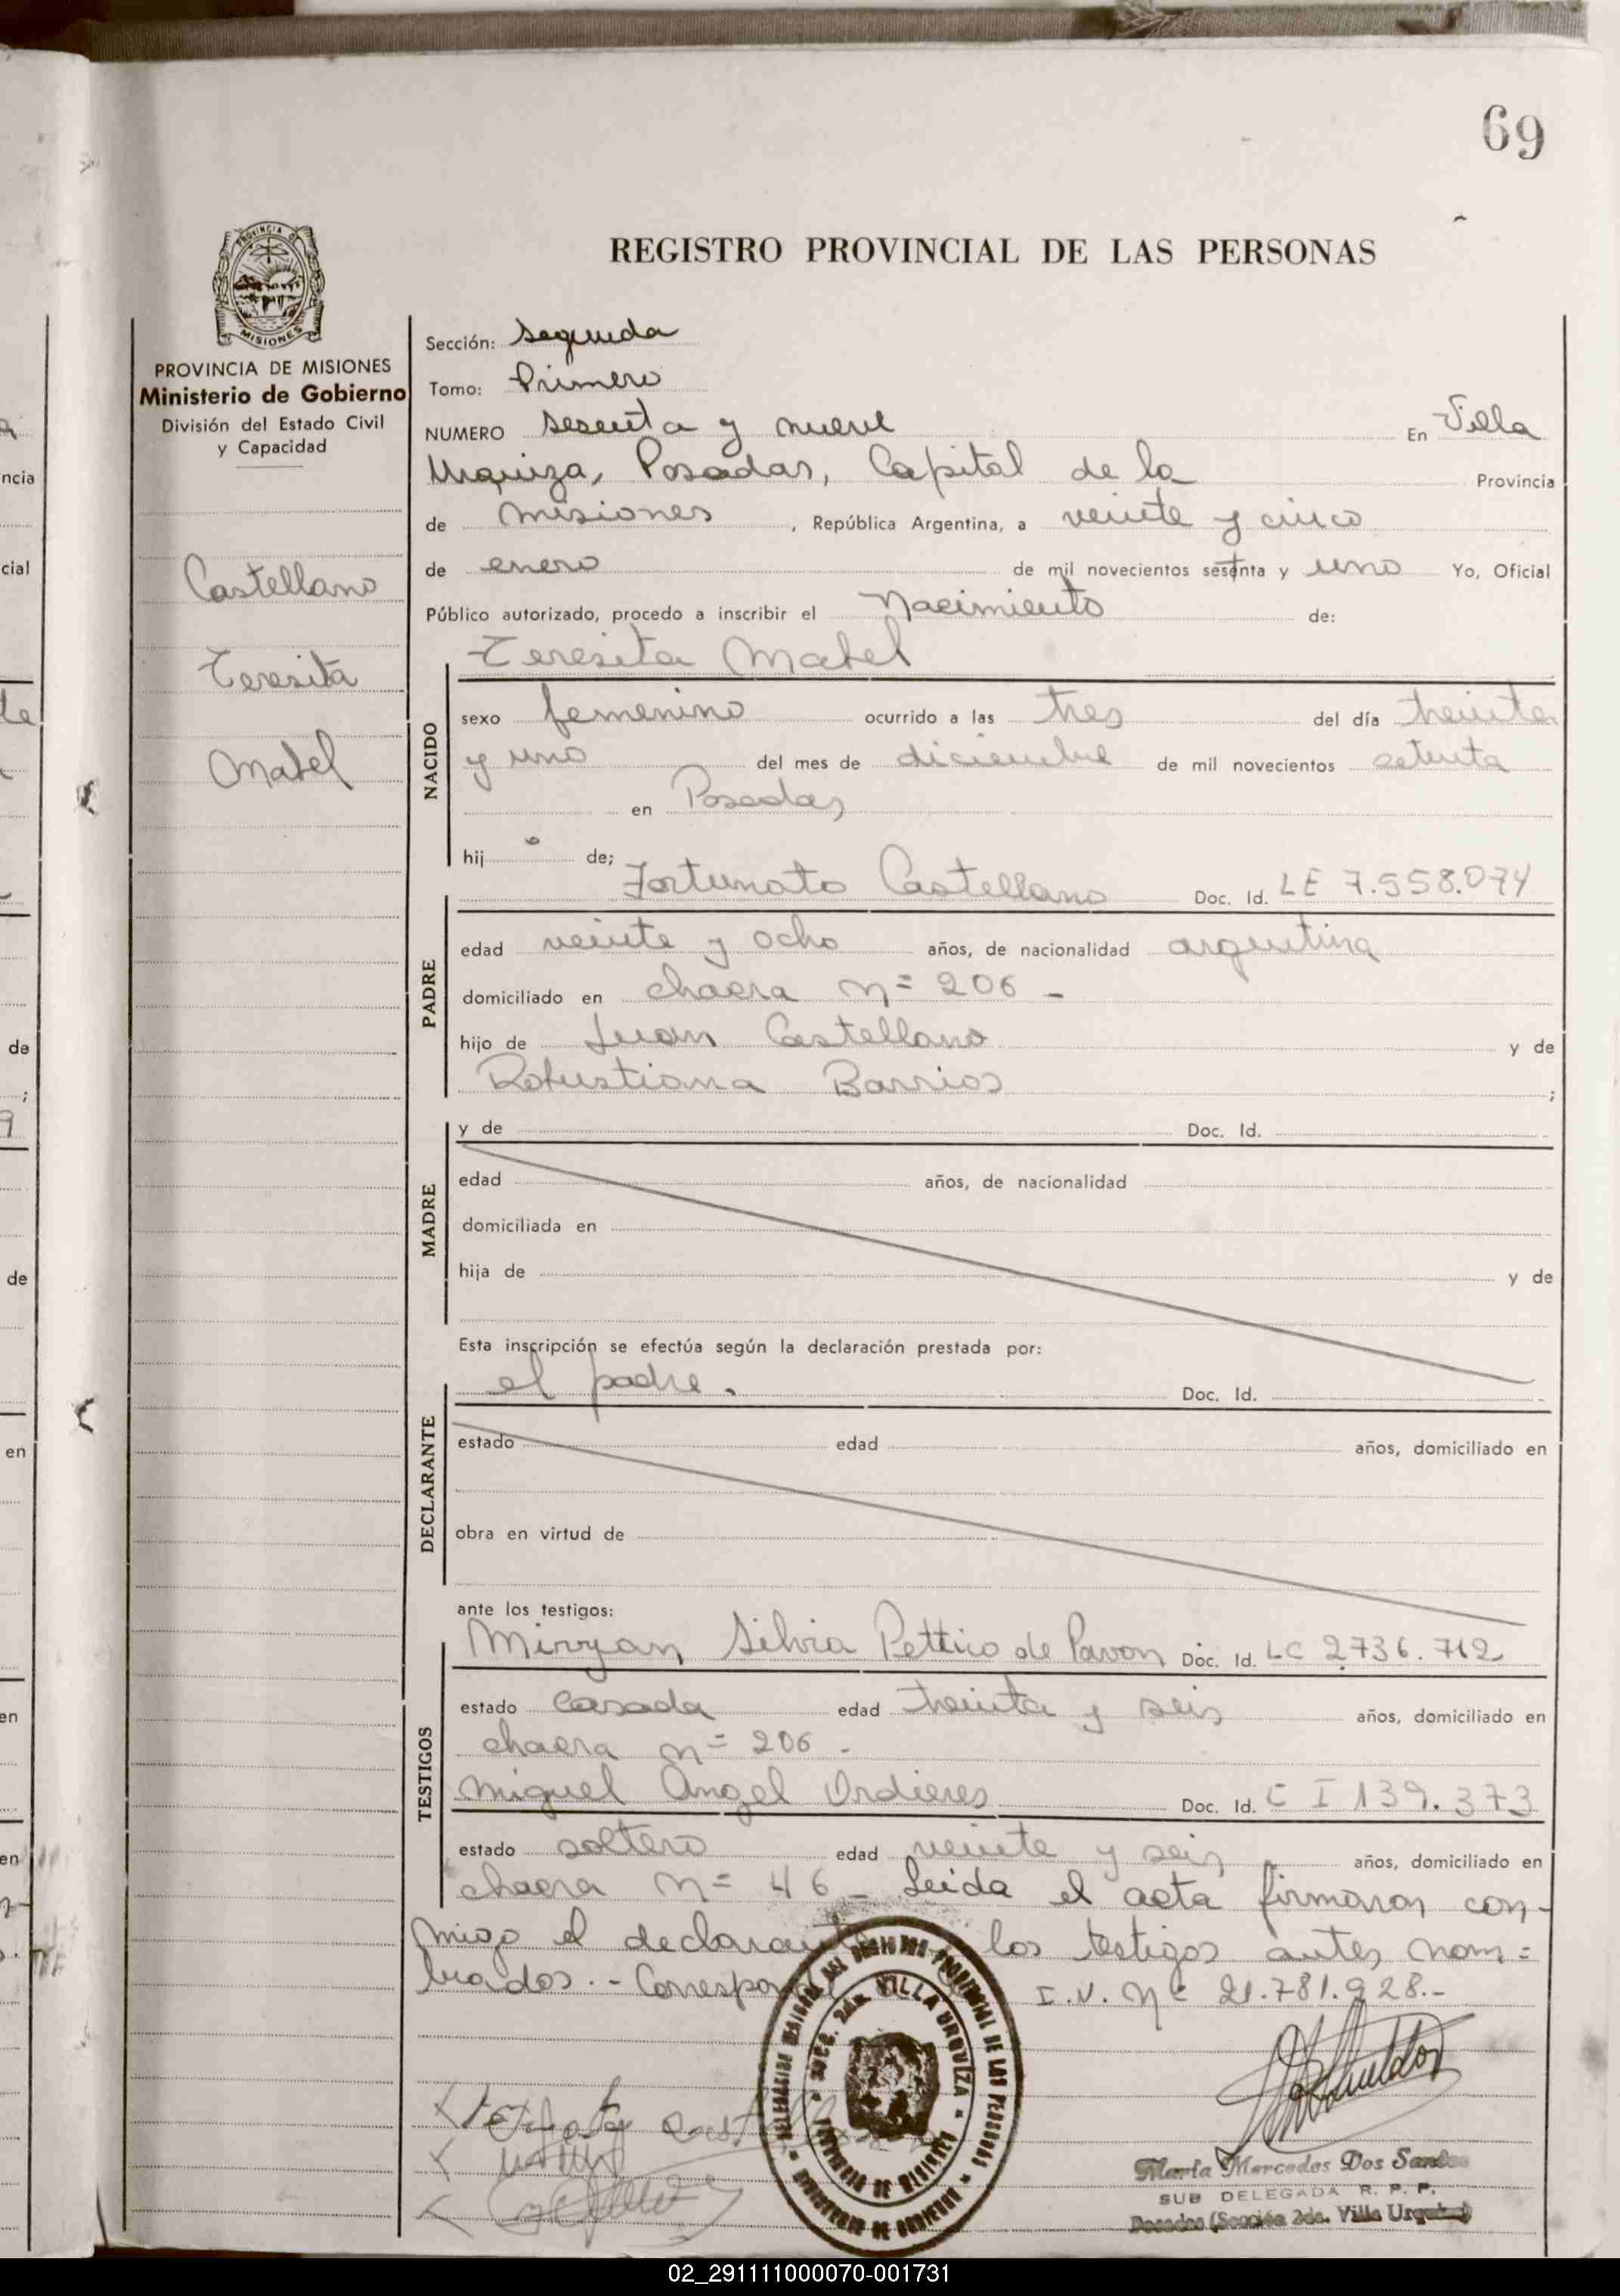 69
REGISTRO PROVINCIAL DE LAS PERSONAS
PROVINCIA DE
MISIONES
PROVINCIA DE MISIONES
Ministerio de Gobierno
División del Estado Civil
y Capacidad
Castellano
Teresita
Mabel
Sección: Segunda
Tomo: Primero
NUMERO sesenta y nueve En Villa
Urquiza, Posadas, Capital de la Provincia
de Misiones, República Argentina, a veinte y cinco
de enero de mil novecientos setenta y uno Yo, Oficial
Público autorizado, procedo a inscribir el Nacimiento de:
Teresita Mabel
NACIDO
sexo femenino ocurrido a las tres del día treinta
y uno del mes de diciembre de mil novecientos setenta
en Posadas
hij a de;
Fortunato Castellano Doc. Id. LE 7.558.074
PADRE
edad veinte y ocho años, de nacionalidad argentina
domiciliado en chacra nº 206 -
hijo de Juan Castellano y de
Robustiana Barrios ;
MADRE
y de Doc. Id.
edad años, de nacionalidad
domiciliada en
hija de y de
Esta inscripción se efectúa según la declaración prestada por:
el padre. Doc. Id.
DECLARANTE
estado edad años, domiciliado en
obra en virtud de
ante los testigos:
Miryan Silvia Pettico de Pavon Doc. Id. LC 2736.712
TESTIGOS
estado Casada edad treinta y seis años, domiciliado en
chacra nº 206 -
Miguel Angel Ordieres Doc. Id. C I 139.373
estado soltero edad veinte y seis años, domiciliado en
chacra nº 46 - Leida el acta firmaron con-
migo el declarante los testigos antes nom=
brados.- Correspon I.V. Nº 21.781.928.-
SECC. 2da. VILLA URQUIZA
PROVINCIA DE MISIONES
MINISTERIO DE GOBIERNO
María Mercedes Dos Santos
SUB DELEGADA R. P. P.
Posadas (Sección 2da. Villa Urquiza)
02_291111000070-001731